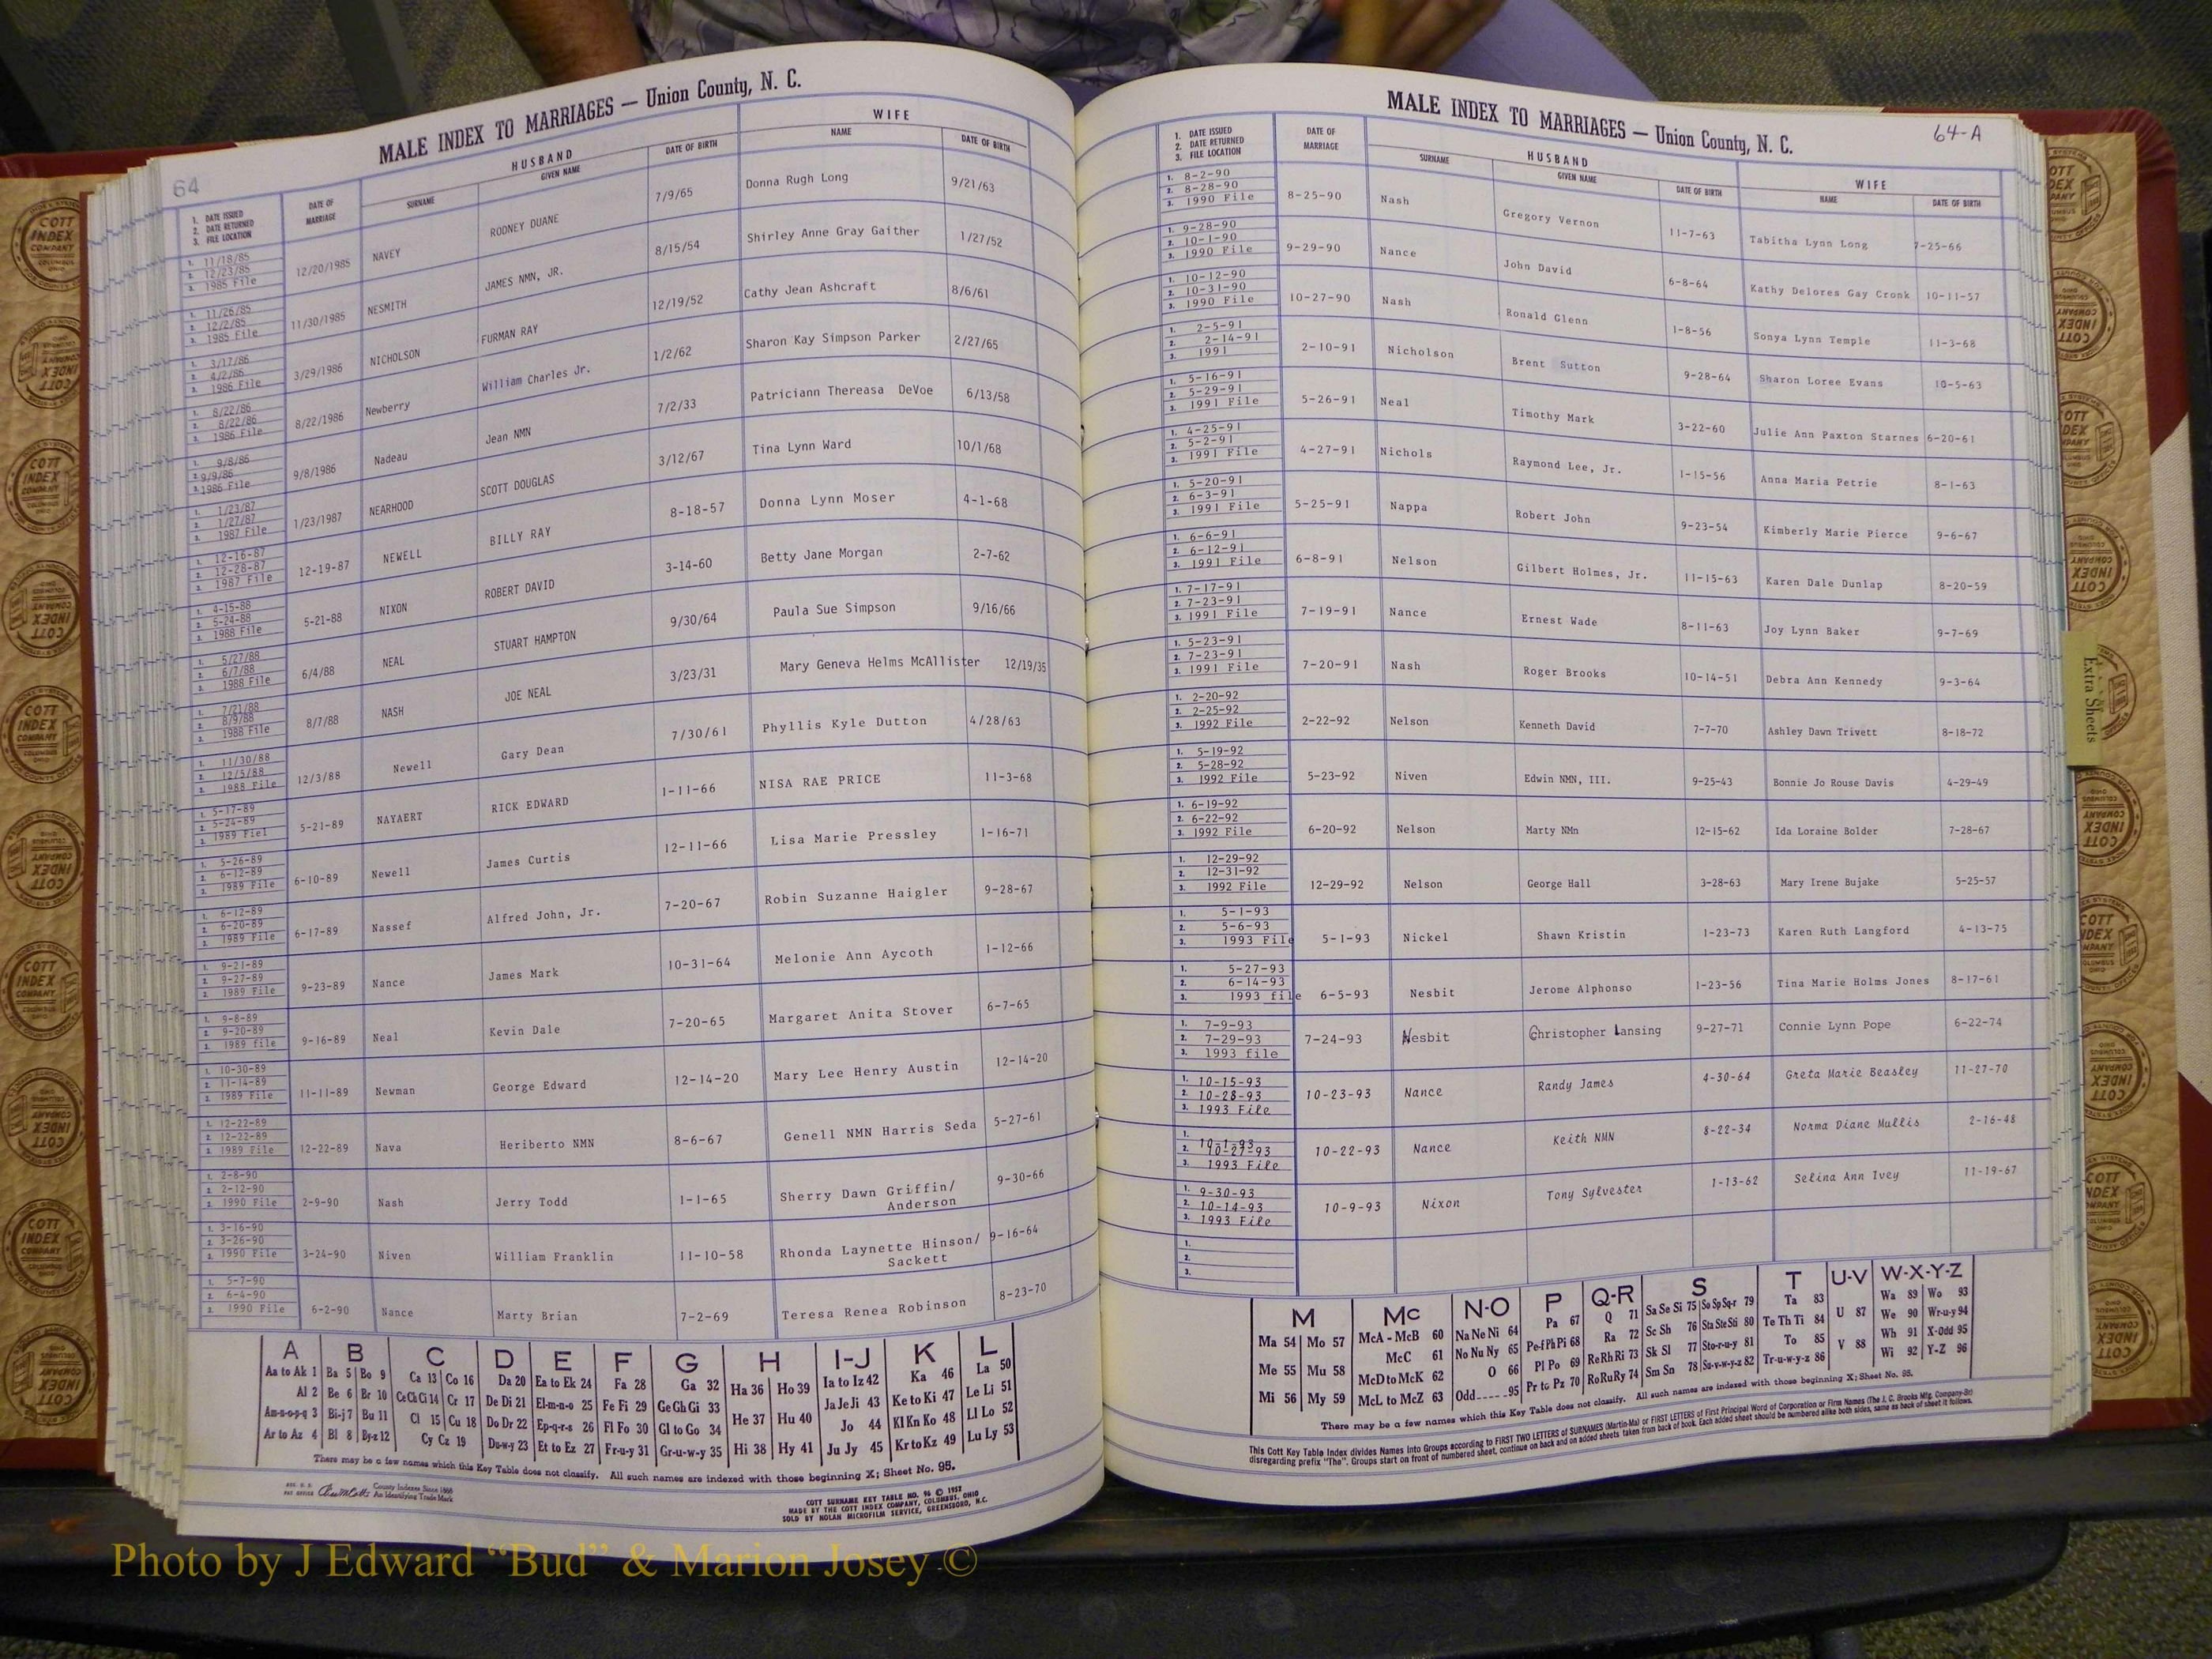 64
MALE INDEX TO MARRIAGES — Union County, N. C.
1. DATE ISSUED 2. DATE RETURNED 3. FILE LOCATION | DATE OF MARRIAGE | HUSBAND SURNAME | GIVEN NAME | DATE OF BIRTH | WIFE NAME | DATE OF BIRTH
1. 11/18/85 2. 12/23/85 3. 1985 File 12/20/1985 NAVEY RODNEY DUANE 7/9/65 Donna Rugh Long 9/21/63
1. 11/26/85 2. 12/2/85 3. 1985 File 11/30/1985 NESMITH JAMES NMN, JR. 8/15/54 Shirley Anne Gray Gaither 1/27/52
1. 3/17/86 2. 4/2/86 3. 1986 File 3/29/1986 NICHOLSON FURMAN RAY 12/19/52 Cathy Jean Ashcraft 8/6/61
1. 8/22/86 2. 8/22/86 3. 1986 File 8/22/1986 Newberry William Charles Jr. 1/2/62 Sharon Kay Simpson Parker 2/27/65
1. 9/8/86 2. 9/9/86 3. 1986 File 9/8/1986 Nadeau Jean NMN 7/2/33 Patriciann Thereasa DeVoe 6/13/58
1. 1/23/87 2. 1/27/87 3. 1987 File 1/23/1987 NEARHOOD SCOTT DOUGLAS 3/12/67 Tina Lynn Ward 10/1/68
1. 12-16-87 2. 12-28-87 3. 1987 File 12-19-87 NEWELL BILLY RAY 8-18-57 Donna Lynn Moser 4-1-68
1. 4-15-88 2. 5-24-88 3. 1988 File 5-21-88 NIXON ROBERT DAVID 3-14-60 Betty Jane Morgan 2-7-62
1. 5/27/88 2. 6/7/88 3. 1988 File 6/4/88 NEAL STUART HAMPTON 9/30/64 Paula Sue Simpson 9/16/66
1. 7/21/88 2. 8/9/88 3. 1988 File 8/7/88 NASH JOE NEAL 3/23/31 Mary Geneva Helms McAllister 12/19/35
1. 11/30/88 2. 12/5/88 3. 1988 File 12/3/88 Newell Gary Dean 7/30/61 Phyllis Kyle Dutton 4/28/63
1. 5-17-89 2. 5-24-89 3. 1989 Fiel 5-21-89 NAYAERT RICK EDWARD 1-11-66 NISA RAE PRICE 11-3-68
1. 5-26-89 2. 6-12-89 3. 1989 File 6-10-89 Newell James Curtis 12-11-66 Lisa Marie Pressley 1-16-71
1. 6-12-89 2. 6-20-89 3. 1989 File 6-17-89 Nassef Alfred John, Jr. 7-20-67 Robin Suzanne Haigler 9-28-67
1. 9-21-89 2. 9-27-89 3. 1989 File 9-23-89 Nance James Mark 10-31-64 Melonie Ann Aycoth 1-12-66
1. 9-8-89 2. 9-20-89 3. 1989 file 9-16-89 Neal Kevin Dale 7-20-65 Margaret Anita Stover 6-7-65
1. 10-30-89 2. 11-14-89 3. 1989 File 11-11-89 Newman George Edward 12-14-20 Mary Lee Henry Austin 12-14-20
1. 12-22-89 2. 12-22-89 3. 1989 File 12-22-89 Nava Heriberto NMN 8-6-67 Genell NMN Harris Seda 5-27-61
1. 2-8-90 2. 2-12-90 3. 1990 File 2-9-90 Nash Jerry Todd 1-1-65 Sherry Dawn Griffin/ Anderson 9-30-66
1. 3-16-90 2. 3-26-90 3. 1990 File 3-24-90 Niven William Franklin 11-10-58 Rhonda Laynette Hinson/ Sackett 9-16-64
1. 5-7-90 2. 6-4-90 3. 1990 File 6-2-90 Nance Marty Brian 7-2-69 Teresa Renea Robinson 8-23-70
A B C D E F G H I-J K L
Aa to Ak 1 Ba 5 Bo 9 Ca 13 Co 16 Da 20 Ea to Ek 24 Fa 28 Ga 32 Ha 36 Ho 39 Ia to Iz 42 Ka 46 La 50
Al 2 Be 6 Br 10 Ce Ch Ci 14 Cr 17 De Di 21 El-m-n-o 25 Fe Fi 29 Ge Gh Gi 33 He 37 Hu 40 Ja Je Ji 43 Ke to Ki 47 Le Li 51
Am-n-o-p-q 3 Bi-j 7 Bu 11 Cl 15 Cu 18 Do Dr 22 Ep-q-r-s 26 Fl Fo 30 Gl to Go 34 Hi 38 Hy 41 Jo 44 Kl Kn Ko 48 Ll Lo 52
Ar to Az 4 Bl 8 By-z 12 Cy Cz 19 Du-w-y 23 Et to Ez 27 Fr-u-y 31 Gr-u-w-y 35 Ju Jy 45 Kr to Kz 49 Lu Ly 53
There may be a few names which this Key Table does not classify. All such names are indexed with those beginning X; Sheet No. 95.
County Indexes Since 1888
An Identifying Trade Mark
COTT SURNAME KEY TABLE NO. 96 © 1952
MADE BY THE COTT INDEX COMPANY, COLUMBUS, OHIO
SOLD BY NOLAN MICROFILM SERVICE, GREENSBORO, N.C.
64-A
MALE INDEX TO MARRIAGES — Union County, N. C.
1. DATE ISSUED 2. DATE RETURNED 3. FILE LOCATION | DATE OF MARRIAGE | HUSBAND SURNAME | GIVEN NAME | DATE OF BIRTH | WIFE NAME | DATE OF BIRTH
1. 8-2-90 2. 8-28-90 3. 1990 File 8-25-90 Nash Gregory Vernon 11-7-63 Tabitha Lynn Long 7-25-66
1. 9-28-90 2. 10-1-90 3. 1990 File 9-29-90 Nance John David 6-8-64 Kathy Delores Gay Cronk 10-11-57
1. 10-12-90 2. 10-31-90 3. 1990 File 10-27-90 Nash Ronald Glenn 1-8-56 Sonya Lynn Temple 11-3-68
1. 2-5-91 2. 2-14-91 3. 1991 2-10-91 Nicholson Brent Sutton 9-28-64 Sharon Loree Evans 10-5-63
1. 5-16-91 2. 5-29-91 3. 1991 File 5-26-91 Neal Timothy Mark 3-22-60 Julie Ann Paxton Starnes 6-20-61
1. 4-25-91 2. 5-2-91 3. 1991 File 4-27-91 Nichols Raymond Lee, Jr. 1-15-56 Anna Maria Petrie 8-1-63
1. 5-20-91 2. 6-3-91 3. 1991 File 5-25-91 Nappa Robert John 9-23-54 Kimberly Marie Pierce 9-6-67
1. 6-6-91 2. 6-12-91 3. 1991 File 6-8-91 Nelson Gilbert Holmes, Jr. 11-15-63 Karen Dale Dunlap 8-20-59
1. 7-17-91 2. 7-23-91 3. 1991 File 7-19-91 Nance Ernest Wade 8-11-63 Joy Lynn Baker 9-7-69
1. 5-23-91 2. 7-23-91 3. 1991 File 7-20-91 Nash Roger Brooks 10-14-51 Debra Ann Kennedy 9-3-64
1. 2-20-92 2. 2-25-92 3. 1992 File 2-22-92 Nelson Kenneth David 7-7-70 Ashley Dawn Trivett 8-18-72
1. 5-19-92 2. 5-28-92 3. 1992 File 5-23-92 Niven Edwin NMN, III. 9-25-43 Bonnie Jo Rouse Davis 4-29-49
1. 6-19-92 2. 6-22-92 3. 1992 File 6-20-92 Nelson Marty NMn 12-15-62 Ida Loraine Bolder 7-28-67
1. 12-29-92 2. 12-31-92 3. 1992 File 12-29-92 Nelson George Hall 3-28-63 Mary Irene Bujake 5-25-57
1. 5-1-93 2. 5-6-93 3. 1993 File 5-1-93 Nickel Shawn Kristin 1-23-73 Karen Ruth Langford 4-13-75
1. 5-27-93 2. 6-14-93 3. 1993 file 6-5-93 Nesbit Jerome Alphonso 1-23-56 Tina Marie Holms Jones 8-17-61
1. 7-9-93 2. 7-29-93 3. 1993 file 7-24-93 Nesbit Christopher Lansing 9-27-71 Connie Lynn Pope 6-22-74
1. 10-15-93 2. 10-28-93 3. 1993 File 10-23-93 Nance Randy James 4-30-64 Greta Marie Beasley 11-27-70
1. 10-1-93 2. 10-27-93 3. 1993 File 10-22-93 Nance Keith NMN 8-22-34 Norma Diane Mullis 2-16-48
1. 9-30-93 2. 10-14-93 3. 1993 File 10-9-93 Nixon Tony Sylvester 1-13-62 Selina Ann Ivey 11-19-67
1. 2. 3.
M Mc N-O P Q-R S T U-V W-X-Y-Z
Ma 54 Mo 57 McA - McB 60 Na Ne Ni 64 Pa 67 Q 71 Sa Se Si 75 So Sp Sq-r 79 Ta 83 U 87 Wa 89 Wo 93
Me 55 Mu 58 McC 61 No Nu Ny 65 Pe-f Ph Pi 68 Ra 72 Sc Sh 76 Sta Ste Sti 80 Te Th Ti 84 V 88 We 90 Wr-u-y 94
Mi 56 My 59 McD to McK 62 O 66 Pl Po 69 Re Rh Ri 73 Sk Sl 77 Sto-r-u-y 81 To 85 Wh 91 X-Odd 95
McL to McZ 63 Odd 95 Pr to Pz 70 Ro Ru Ry 74 Sm Sn 78 Su-v-w-y-z 82 Tr-u-w-y-z 86 Wi 92 Y-Z 96
There may be a few names which this Key Table does not classify. All such names are indexed with those beginning X; Sheet No. 95.
This Cott Key Table Index divides Names Into Groups according to FIRST TWO LETTERS of SURNAMES (Martin-Ma) or FIRST LETTERS of First Principal Word of Corporation or Firm Names (The J. C. Brooks Mfg. Company-Br)
disregarding prefix "The". Groups start on front of numbered sheet, continue on back and on added sheets taken from back of book. Each added sheet should be numbered alike both sides, same as back of sheet it follows.
Extra Sheets
COTT INDEX COMPANY COLUMBUS OHIO
Photo by J Edward "Bud" & Marion Josey ©